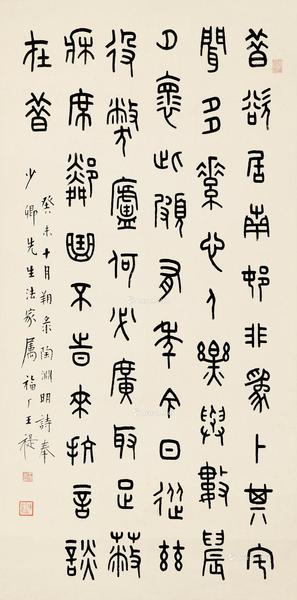 昔欲居南邨非為卜其宅
聞多素心人樂與數晨
夕懷此頗有年今日從茲
役敝廬何必廣取足蔽
牀席鄰曲不旹來抗言談
在昔
癸未十月朔彔陶淵明詩奉
少卿先生法家屬 福厂王禔